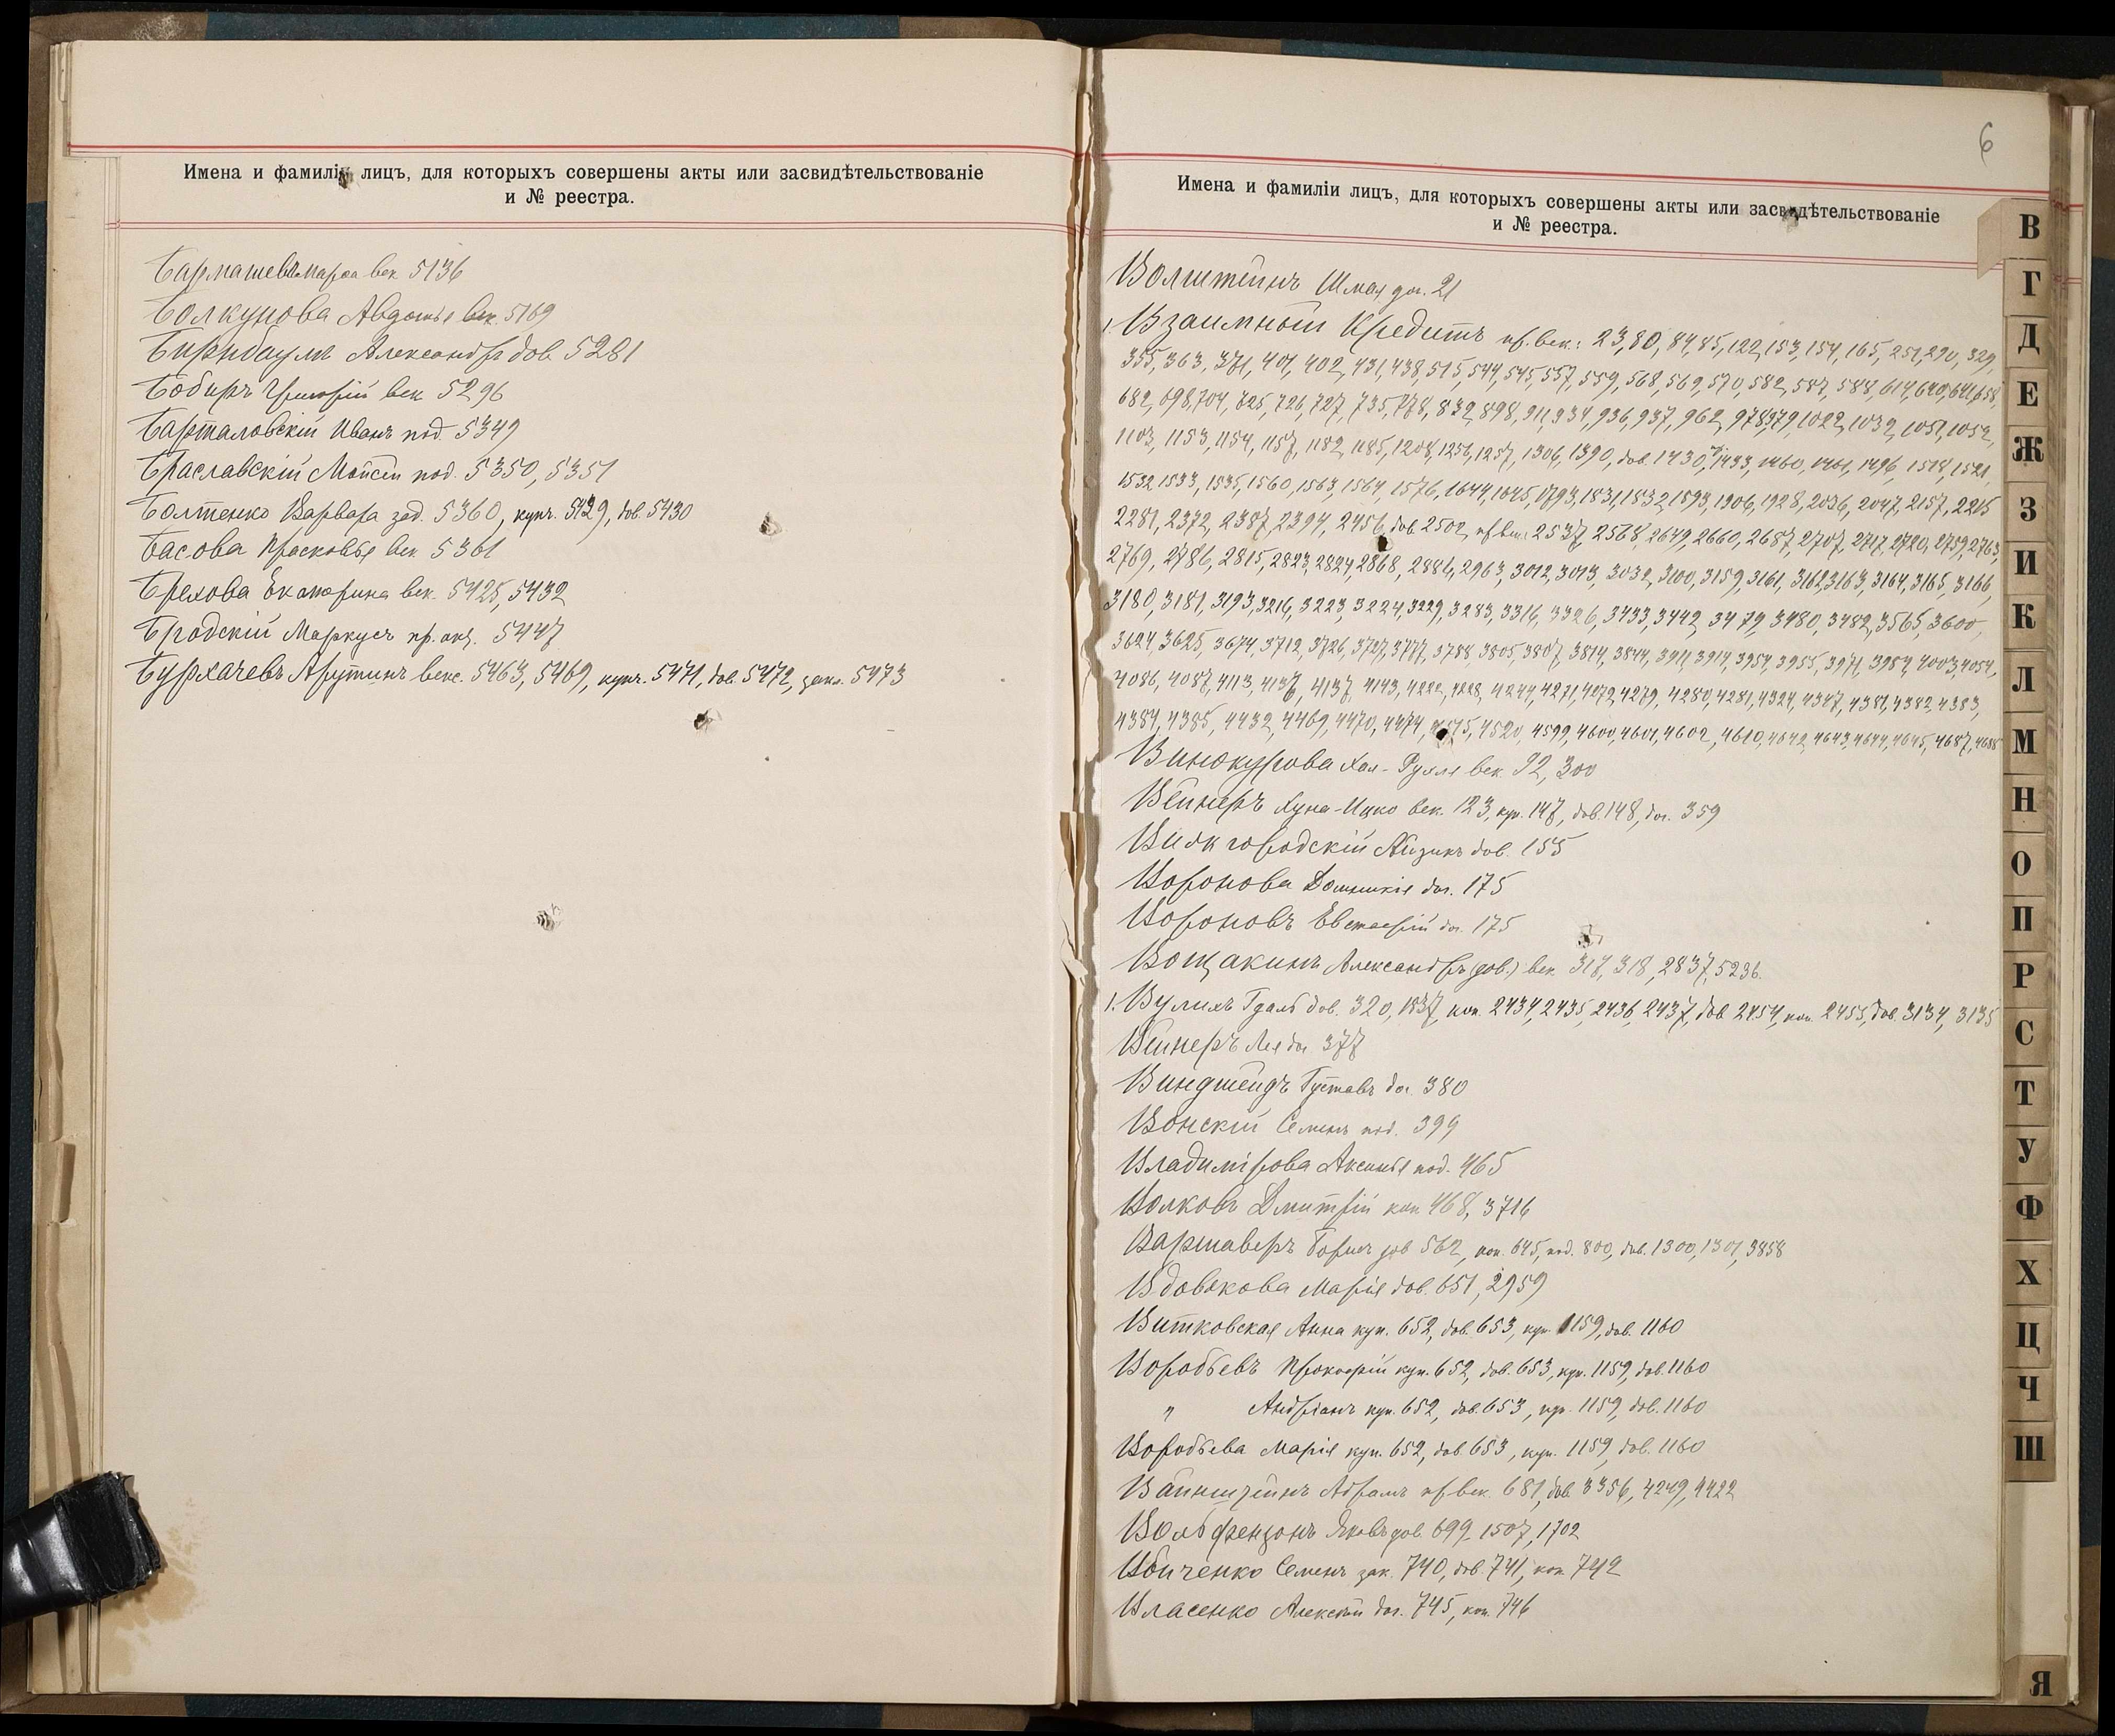 Имена и фамиліи лицъ, для которыхъ совершены акты или засвидѣтельствованіе
и № реестра.
век. 5136
Болкунова Авдотья век. 5169
Бирнбаумъ Александръ дов. 5281
век. 5296
Барталовскій Иванъ под. 5349
Браславскій Мойсей под. 5350, 5351
Болтенко Варвара зад. 5360, купч. 5429, дов. 5430
Басова Прасковья век. 5361
Брехова Екатерина век. 5425, 5432
Бродскій Маркусъ пр. акц. 5447
Бурхачевъ Арутинъ векс. 5463, 5469, купч. 5471, дов. 5472, 5473
6
Имена и фамиліи лицъ, для которыхъ совершены акты или засвидѣтельствованіе
и № реестра.
Волштейнъ Шмая дог. 21
Взаимный Кредитъ пр. век.: 23, 80, 84, 85, 122, 153, 154, 165, 251, 290, 329,
355, 363, 371, 401, 402, 431, 438, 515, 544, 545, 557, 559, 568, 569, 570, 582, 587, 588, 614, 640, 641, 658,
682, 698, 704, 725, 726, 727, 735, 778, 832, 898, 911, 934, 936, 937, 962, 978, 979, 1022, 1032, 1051, 1052,
1103, 1153, 1154, 1157, 1182, 1185, 1208, 1256, 1257, 1306, 1390, дов. 1430, 1433, 1460, 1461, 1496, 1518, 1521,
1532, 1533, 1535, 1560, 1563, 1564, 1576, 1644, 1645, 1793, 1831, 1832, 1893, 1906, 1928, 2036, 2047, 2157, 2215
2281, 2372, 2387, 2394, 2456, дов. 2502, пр. век. 2537, 2568, 2649, 2660, 2687, 2707, 2717, 2720, 2759, 2763,
2769, 2786, 2815, 2823, 2824, 2868, 2886, 2963, 3012, 3013, 3032, 3100, 3159, 3161, 3162, 3163, 3164, 3165, 3166,
3180, 3181, 3193, 3216, 3223, 3224, 3229, 3283, 3316, 3326, 3433, 3442, 3479, 3480, 3482, 3565, 3600,
3624, 3625, 3674, 3712, 3726, 3727, 3777, 3788, 3805, 3807, 3814, 3844, 3911, 3914, 3954, 3955, 3971, 3984, 4003, 4054,
4086, 4087, 4113, 4136, 4137, 4143, 4222, 4228, 4244, 4271, 4272, 4279, 4280, 4281, 4324, 4347, 4381, 4382, 4383,
4384, 4385, 4432, 4469, 4470, 4474, 4515, 4520, 4599, 4600, 4601, 4602, 4610, 4642, 4643, 4644, 4645, 4687, 4688
Винокурова Хая-Рухля век. 92, 300
Вейнеръ Хуна-Ицко век. 123, кр. 147, дов. 148, дог. 359
дов. 155
Воронова Домникія дог. 175
Вороновъ Евстафій дог. 175
Вощакинъ Александръ (дов.) век. 317, 318, 2837, 5236.
1. Вулихъ дов. 320, 1837, коп. 2434, 2435, 2436, 2437, дов. 2454, коп. 2455, дов. 3134, 3135
Вейнеръ Лея дог. 377
Виндшейдъ Густавъ дог. 380
Вонскій Семенъ под. 399
Владимірова Аксинья под. 465
Волковъ Дмитрій коп. 468, 3716
Варшаверъ Борисъ дов. 562, коп. 645, под. 800, дов. 1300, 1301, 3858
Вдовкова Марія дов. 651, 2959
Витковская Анна куп. 652, дов. 653, куп. 1159, дов. 1160
Воробьевъ Прокофій куп. 652, дов. 653, куп. 1159, дов. 1160
" Андріанъ куп. 652, дов. 653, куп. 1159, дов. 1160
Воробьева Марія куп. 652, дов. 653, куп. 1159, дов. 1160
Вайнштейнъ Абрамъ пр. век. 681, дов. 3356, 4249, 4422
Вольфензонъ Яковъ дов. 699, 1507, 1702
Войченко Семенъ зак. 740, дов. 741, коп. 742
Власенко Алексѣй дог. 745, коп. 746
В
Г
Д
Е
Ж
З
И
К
Л
М
Н
О
П
Р
С
Т
У
Ф
Х
Ц
Ч
Ш
Я